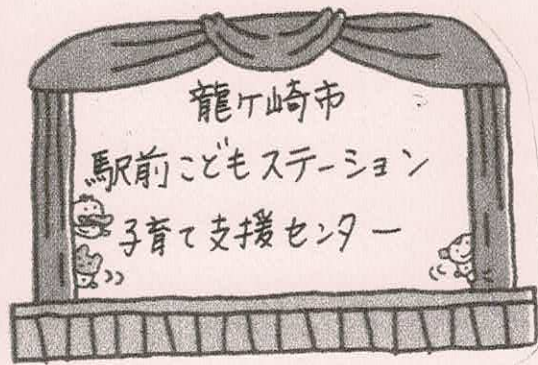 龍ケ崎市
駅前こどもステーション
子育て支援センター